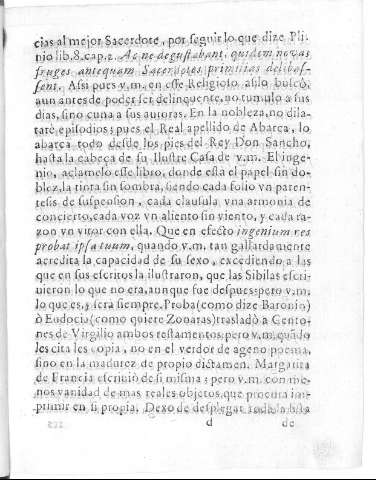 cias al mejor Sacerdote, por seguir lo que dize Pli-
nio lib.8.cap.2. Ac ne degustabant, quidem novas
fruges antequam Sacerdotes primitias delibas-
sent. Assi pues v.m. en esse Religioso asilo buscò,
aun antes de poder ser delinquente, no tumulo a sus
dias, sino cuna a sus autoras. En la nobleza, no dila-
tarè episodios; pues el Real apellido de Abarca, lo
abarca todo desde los pies del Rey Don Sancho,
hasta la cabeça de su Ilustre Casa de v.m. El inge-
nio, aclamelo esse libro, donde està el papel sin do-
blez, la tinta sin sombra, siendo cada folio vn paren-
tesis de suspension, cada clausula vna armonia de
concierto, cada voz vn aliento sin viento, y cada ra-
zon vn vitor con ella. Que en efecto ingenium res
probat ipsa tuum, quando v.m. tan gallardamente
acredita la capacidad de su sexo, excediendo a las
que en sus escritos la ilustraron, que las Sibilas escri-
uieron lo que no era, aunque fue despues: pero v.m.
lo que es, y serà siempre. Proba (como dize Baronio)
ò Eudocia (como quiere Zonaras) trasladò a Cento-
nes de Virgilio ambos testamentos: pero v.m. quãdo
les cita les copia, no en el verdor de ageno poema,
sino en la madurez de propio dictamen. Margarita
de Francia escriuiò de si misma: pero v.m. con me-
nos vanidad de mas reales objetos, que procura im-
primir en si propia. Dexo de desplegar toda la lista
d de